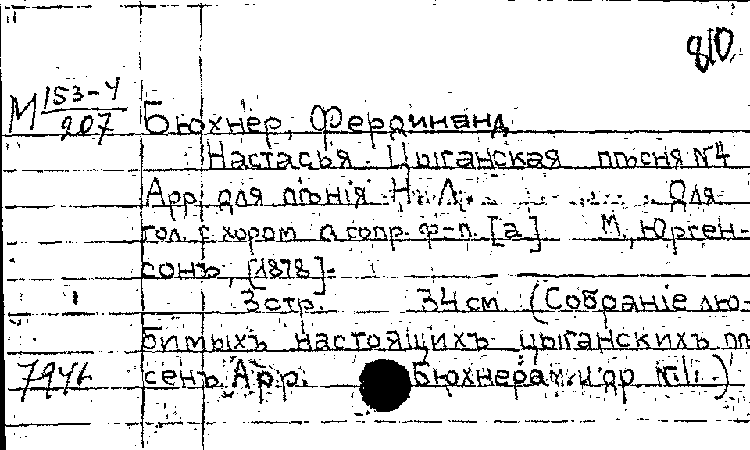 810
М 153-4
207
Бюхнер, Фердинанд
Настасья. Цыганская пѣсня №4
Арр. для пѣнія Н. Л. Для
гол. с хором и сопр. ф-п. [а] М., Юрген-
сонъ, [1878].
3 стр. 34 см (Собраніе лю-
бимыхъ настоящихъ цыганскихъ пѣ-
сенъ Арр. Бюхнера и др. №1.)